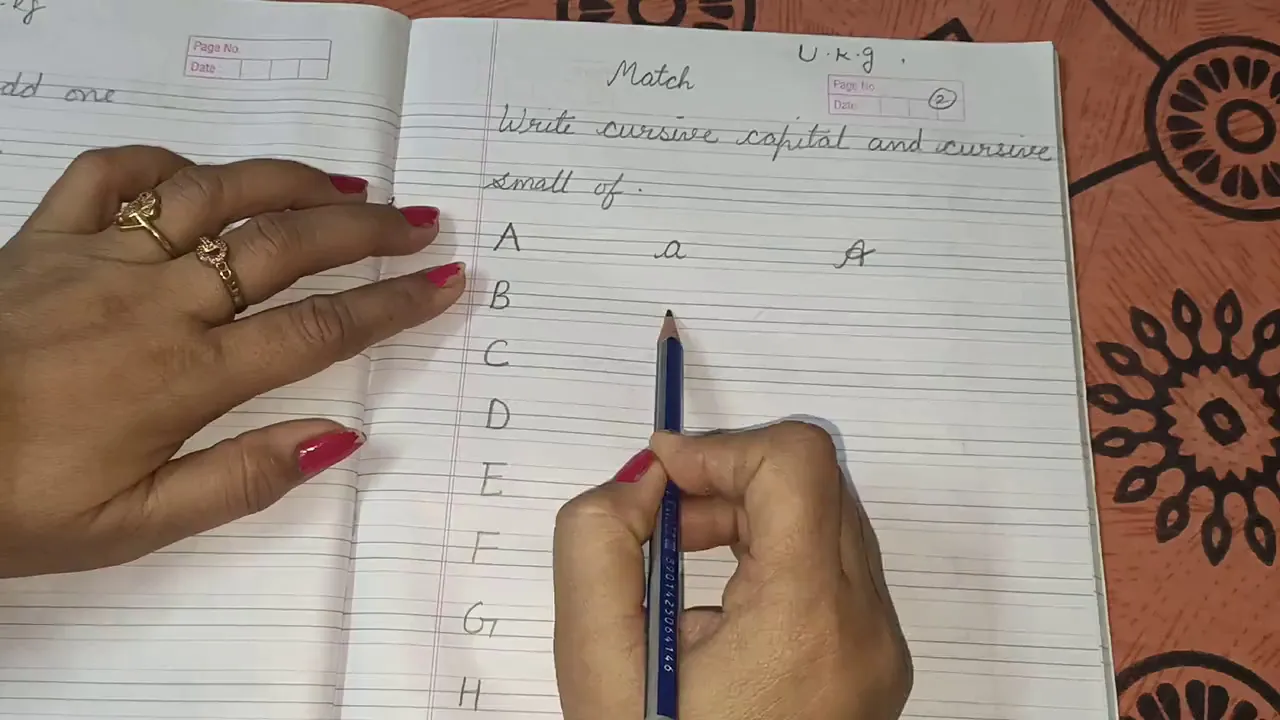 Page No.
Date
dd one
U.K.g.
Match
Page No. 2
Date
Write cursive capital and cursive
small of.
A a A
B
C
D
E
F
G
H